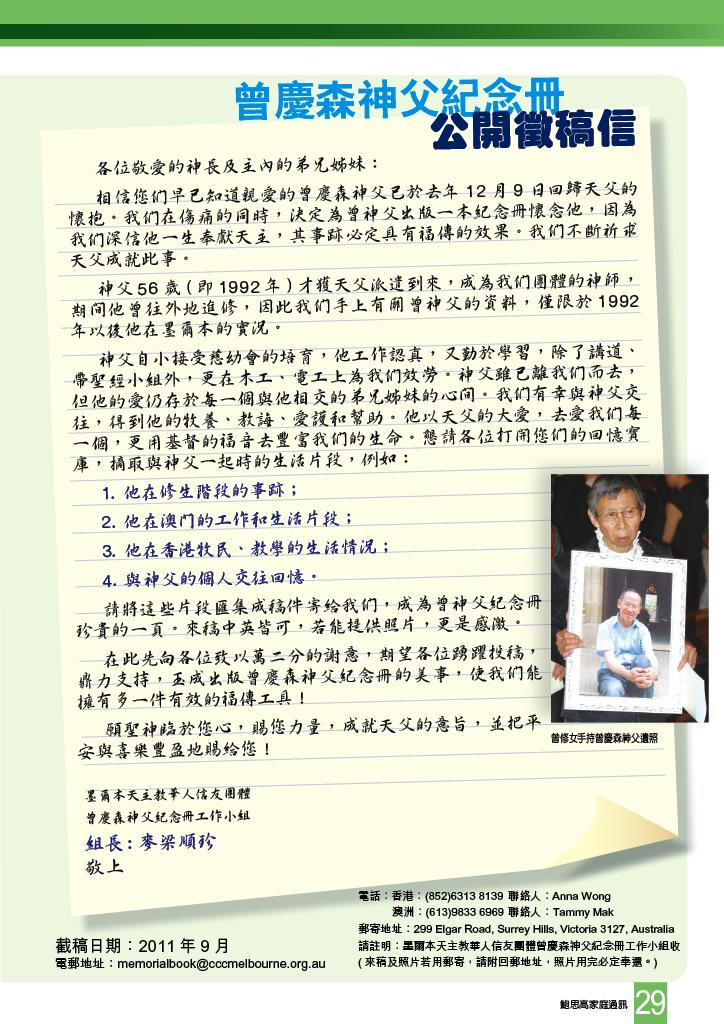 曾慶森神父紀念冊
公開徵稿信
各位敬愛的神長及主內的弟兄姊妹：
相信您們早已知道親愛的曾慶森神父已於去年 12 月 9 日回歸天父的
懷抱。我們在傷痛的同時，決定為曾神父出版一本紀念冊懷念他，因為
我們深信他一生奉獻天主，其事跡必定具有福傳的效果。我們不斷祈求
天父成就此事。
神父 56 歲 ( 即 1992 年 ) 才獲天父派遣到來，成為我們團體的神師，
期間他曾往外地進修，因此我們手上有關曾神父的資料，僅限於 1992
年以後他在墨爾本的實況。
神父自小接受慈幼會的培育，他工作認真，又勤於學習，除了講道、
帶聖經小組外，更在木工、電工上為我們效勞。神父雖已離我們而去，
但他的愛仍存於每一個與他相交的弟兄姊妹的心間。我們有幸與神父交
往，得到他的牧養、教誨、愛護和幫助。他以天父的大愛，去愛我們每
一個，更用基督的福音去豐富我們的生命。懇請各位打開您們的回憶寶
庫，摘取與神父一起時的生活片段，例如：
1. 他在修生階段的事跡；
2. 他在澳門的工作和生活片段；
3. 他在香港牧民、教學的生活情況；
4. 與神父的個人交往回憶。
請將這些片段匯集成稿件寄給我們，成為曾神父紀念冊
珍貴的一頁。來稿中英皆可，若能提供照片，更是感激。
在此先向各位致以萬二分的謝意，期望各位踴躍投稿，
鼎力支持，玉成出版曾慶森神父紀念冊的美事，使我們能
擁有多一件有效的福傳工具！
願聖神臨於您心，賜您力量，成就天父的意旨，並把平
安與喜樂豐盈地賜給您！
曾修女手持曾慶森神父遺照
墨爾本天主教華人信友團體
曾慶森神父紀念冊工作小組
組長：麥梁順珍
敬上
截稿日期：2011 年 9 月
電郵地址：memorialbook@cccmelbourne.org.au
電話：香港：(852)6313 8139 聯絡人：Anna Wong
澳洲：(613)9833 6969 聯絡人：Tammy Mak
郵寄地址：299 Elgar Road, Surrey Hills, Victoria 3127, Australia
請註明：墨爾本天主教華人信友團體曾慶森神父紀念冊工作小組收
( 來稿及照片若用郵寄，請附回郵地址，照片用完必定奉還。)
鮑思高家庭通訊 29